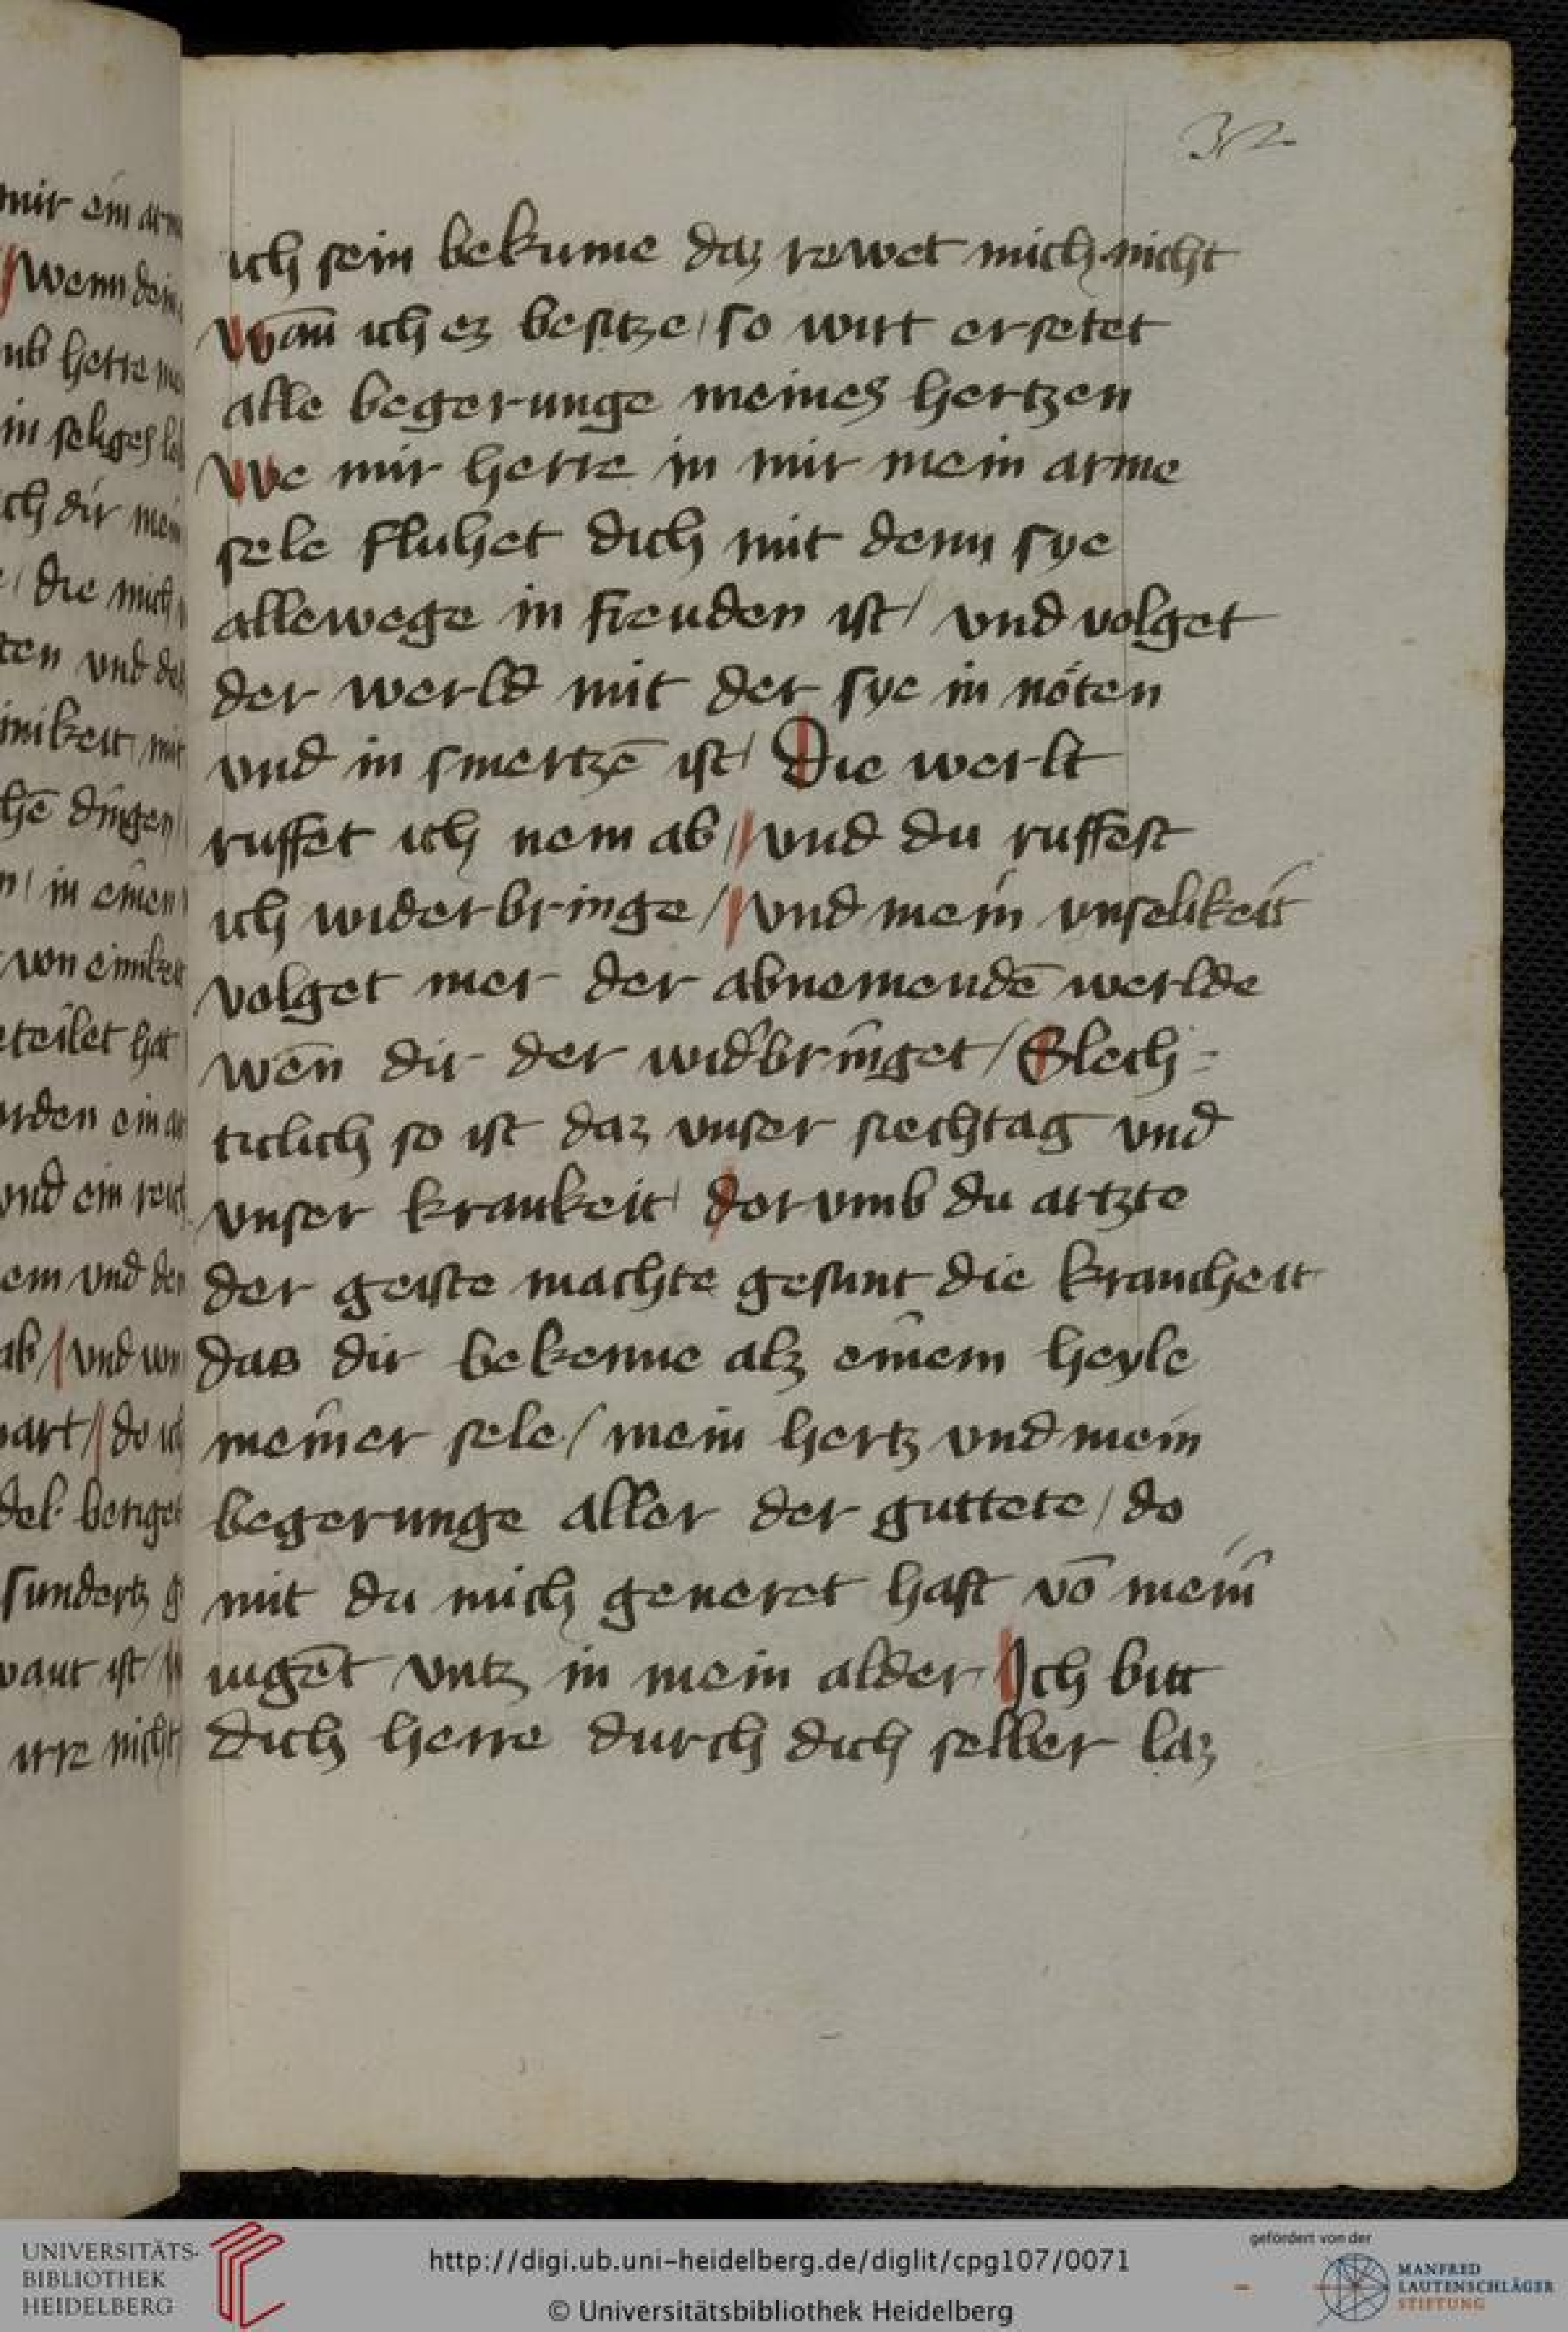 32
ich sein bekume daz rewet mich nicht
Wañ ich ez besitze / so wirt ersetet
alle begerunge meines hertzen
We mir herre in mir mein arme
sele fluhet dich mit dem sye
allewege in freuden ist / vnd volget
der werld mit der sye in nöten
vnd in smertzē ist / Die werlt
ruffet ich nem ab / vnd du ruffest
ich widerbringe / vnd mein vnselikeit
volget mer der abnemendē werlde
wēn dir der widʼbringet / Slech=
ticlich so ist daz vnser siechtag vnd
vnser krankeit / dorvmb du artzte
der geiste machte gesunt die krancheit
das dir bekenne alz einem heyle
meiner sele / mein hertz vnd mein
begerunge aller der guttete / do
mit du mich generet hast vō mein̄
iugēt vntz in mein alder Ich bitt
dich herre durch dich selber laz
mir ein arm
Wenn dein
hette
in seliges
ich dir mein
/ die mich
ten vnd
mit
dingen
/ in einen
von
eteilet hat
ein
vnd ein
vnd der
ab / vnd
art / do ich
sundertz
ist /
irre nicht
UNIVERSITÄTS-
BIBLIOTHEK
HEIDELBERG
http://digi.ub.uni-heidelberg.de/diglit/cpg107/0071
© Universitätsbibliothek Heidelberg
gefördert von der
MANFRED
LAUTENSCHLÄGER
STIFTUNG